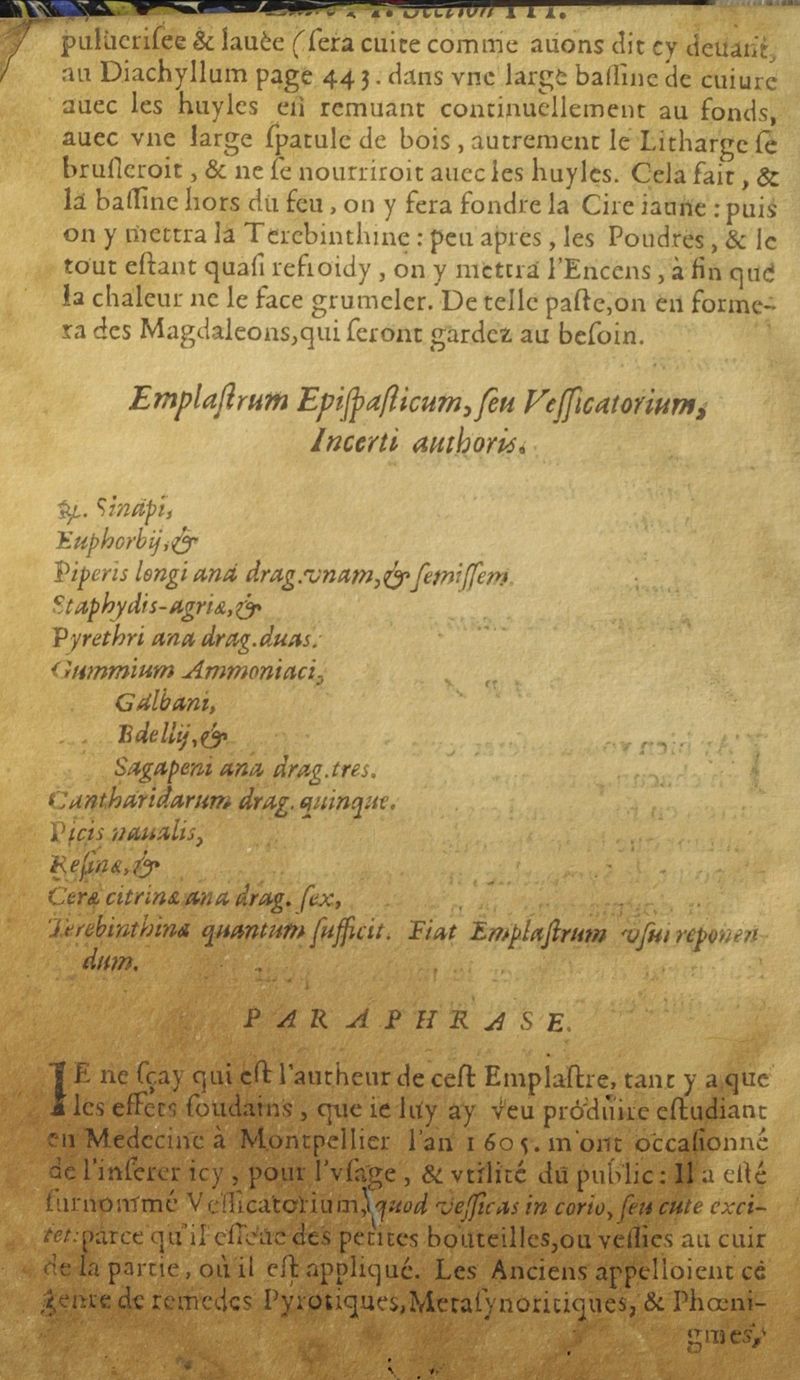 Section III.
puluerisee & lauée (sera cuite comme auons dit cy deuant,
au Diachyllum page 443. dans vne large bassine de cuiure
auec les huyles en remuant continuellement au fonds,
auec vne large spatule de bois, autrement le Litharge se
brusleroit, & ne se nourriroit auec les huyles. Cela fait, &
la bassine hors du feu, on y fera fondre la Cire iaune : puis
on y mettra la Terebinthine : peu apres, les Poudres, & le
tout estant quasi refroidy, on y mettra l'Encens, à fin que
la chaleur ne le face grumeler. De telle paste, on en forme-
ra des Magdaleons, qui seront gardez au besoin.
Emplastrum Epispasticum, seu Vessicatorium,
Incerti authoris.
℞. Sinapi,
Euphorbij, &
Piperis longi ana drag. vnam, & semissem.
Staphydis-agriæ, &
Pyrethri ana drag. duas.
Gummium Ammoniaci,
Galbani,
Bdellij, &
Sagapeni ana drag. tres.
Cantharidarum drag. quinque.
Picis naualis,
Resinæ, &
Ceræ citrinæ ana drag. sex,
Terebinthinæ quantum sufficit. Fiat Emplastrum vsui reponen
dum.
PARAPHRASE.
IE ne sçay qui est l'autheur de cest Emplastre, tant y a que
les effets soudains, que ie luy ay veu produire estudiant
en Medecine à Montpellier l'an 1605. m'ont occasionné
de l'inserer icy, pour l'vsage, & vtilité du public : Il a esté
surnommé Vessicatorium, quod vessicas in corio, seu cute exci-
tet: parce qu'il des petites bouteilles, ou vessies au cuir
de la partie, où il est appliqué. Les Anciens appelloient ce
genre de remedes Pyrotiques, Metasynoritiques, & Phœni-
gmes,